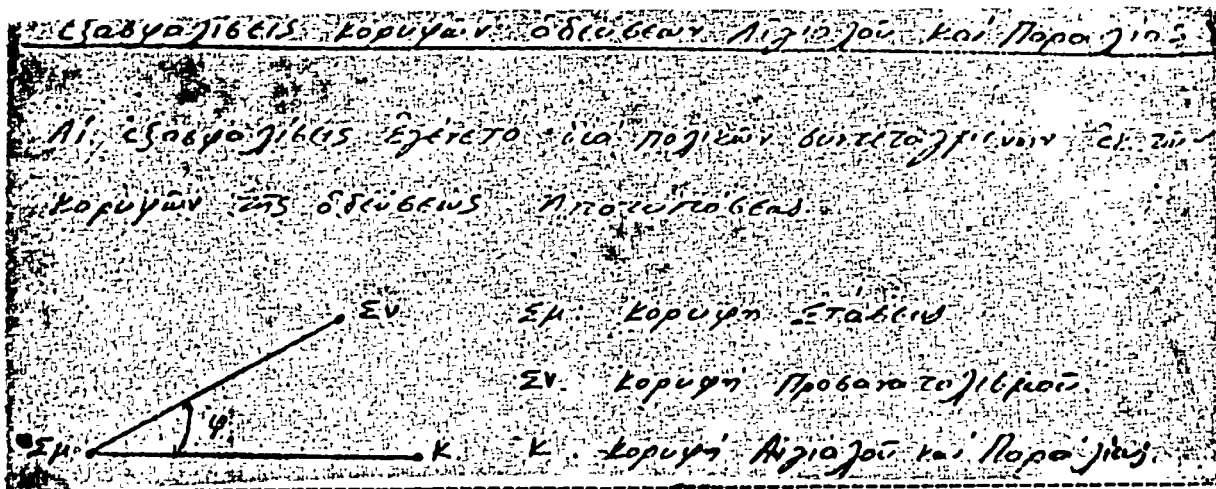 Ἐξασφαλίσεις κορυφῶν ὁδεύσεων Αἰγιαλοῦ καί Παραλίας
Αἱ ἐξασφαλίσεις ἐγένετο διά πολικῶν συντεταγμένων ἐκ τῶν
κορυφῶν τῆς ὁδεύσεως Ἀποτυπώσεως.
Σν
Σμ: Κορυφή Στάσεως
Σν. Κορυφή Προσανατολισμοῦ.
φ
Σμ. Κ Κ. Κορυφή Αἰγιαλοῦ καί Παραλίας.